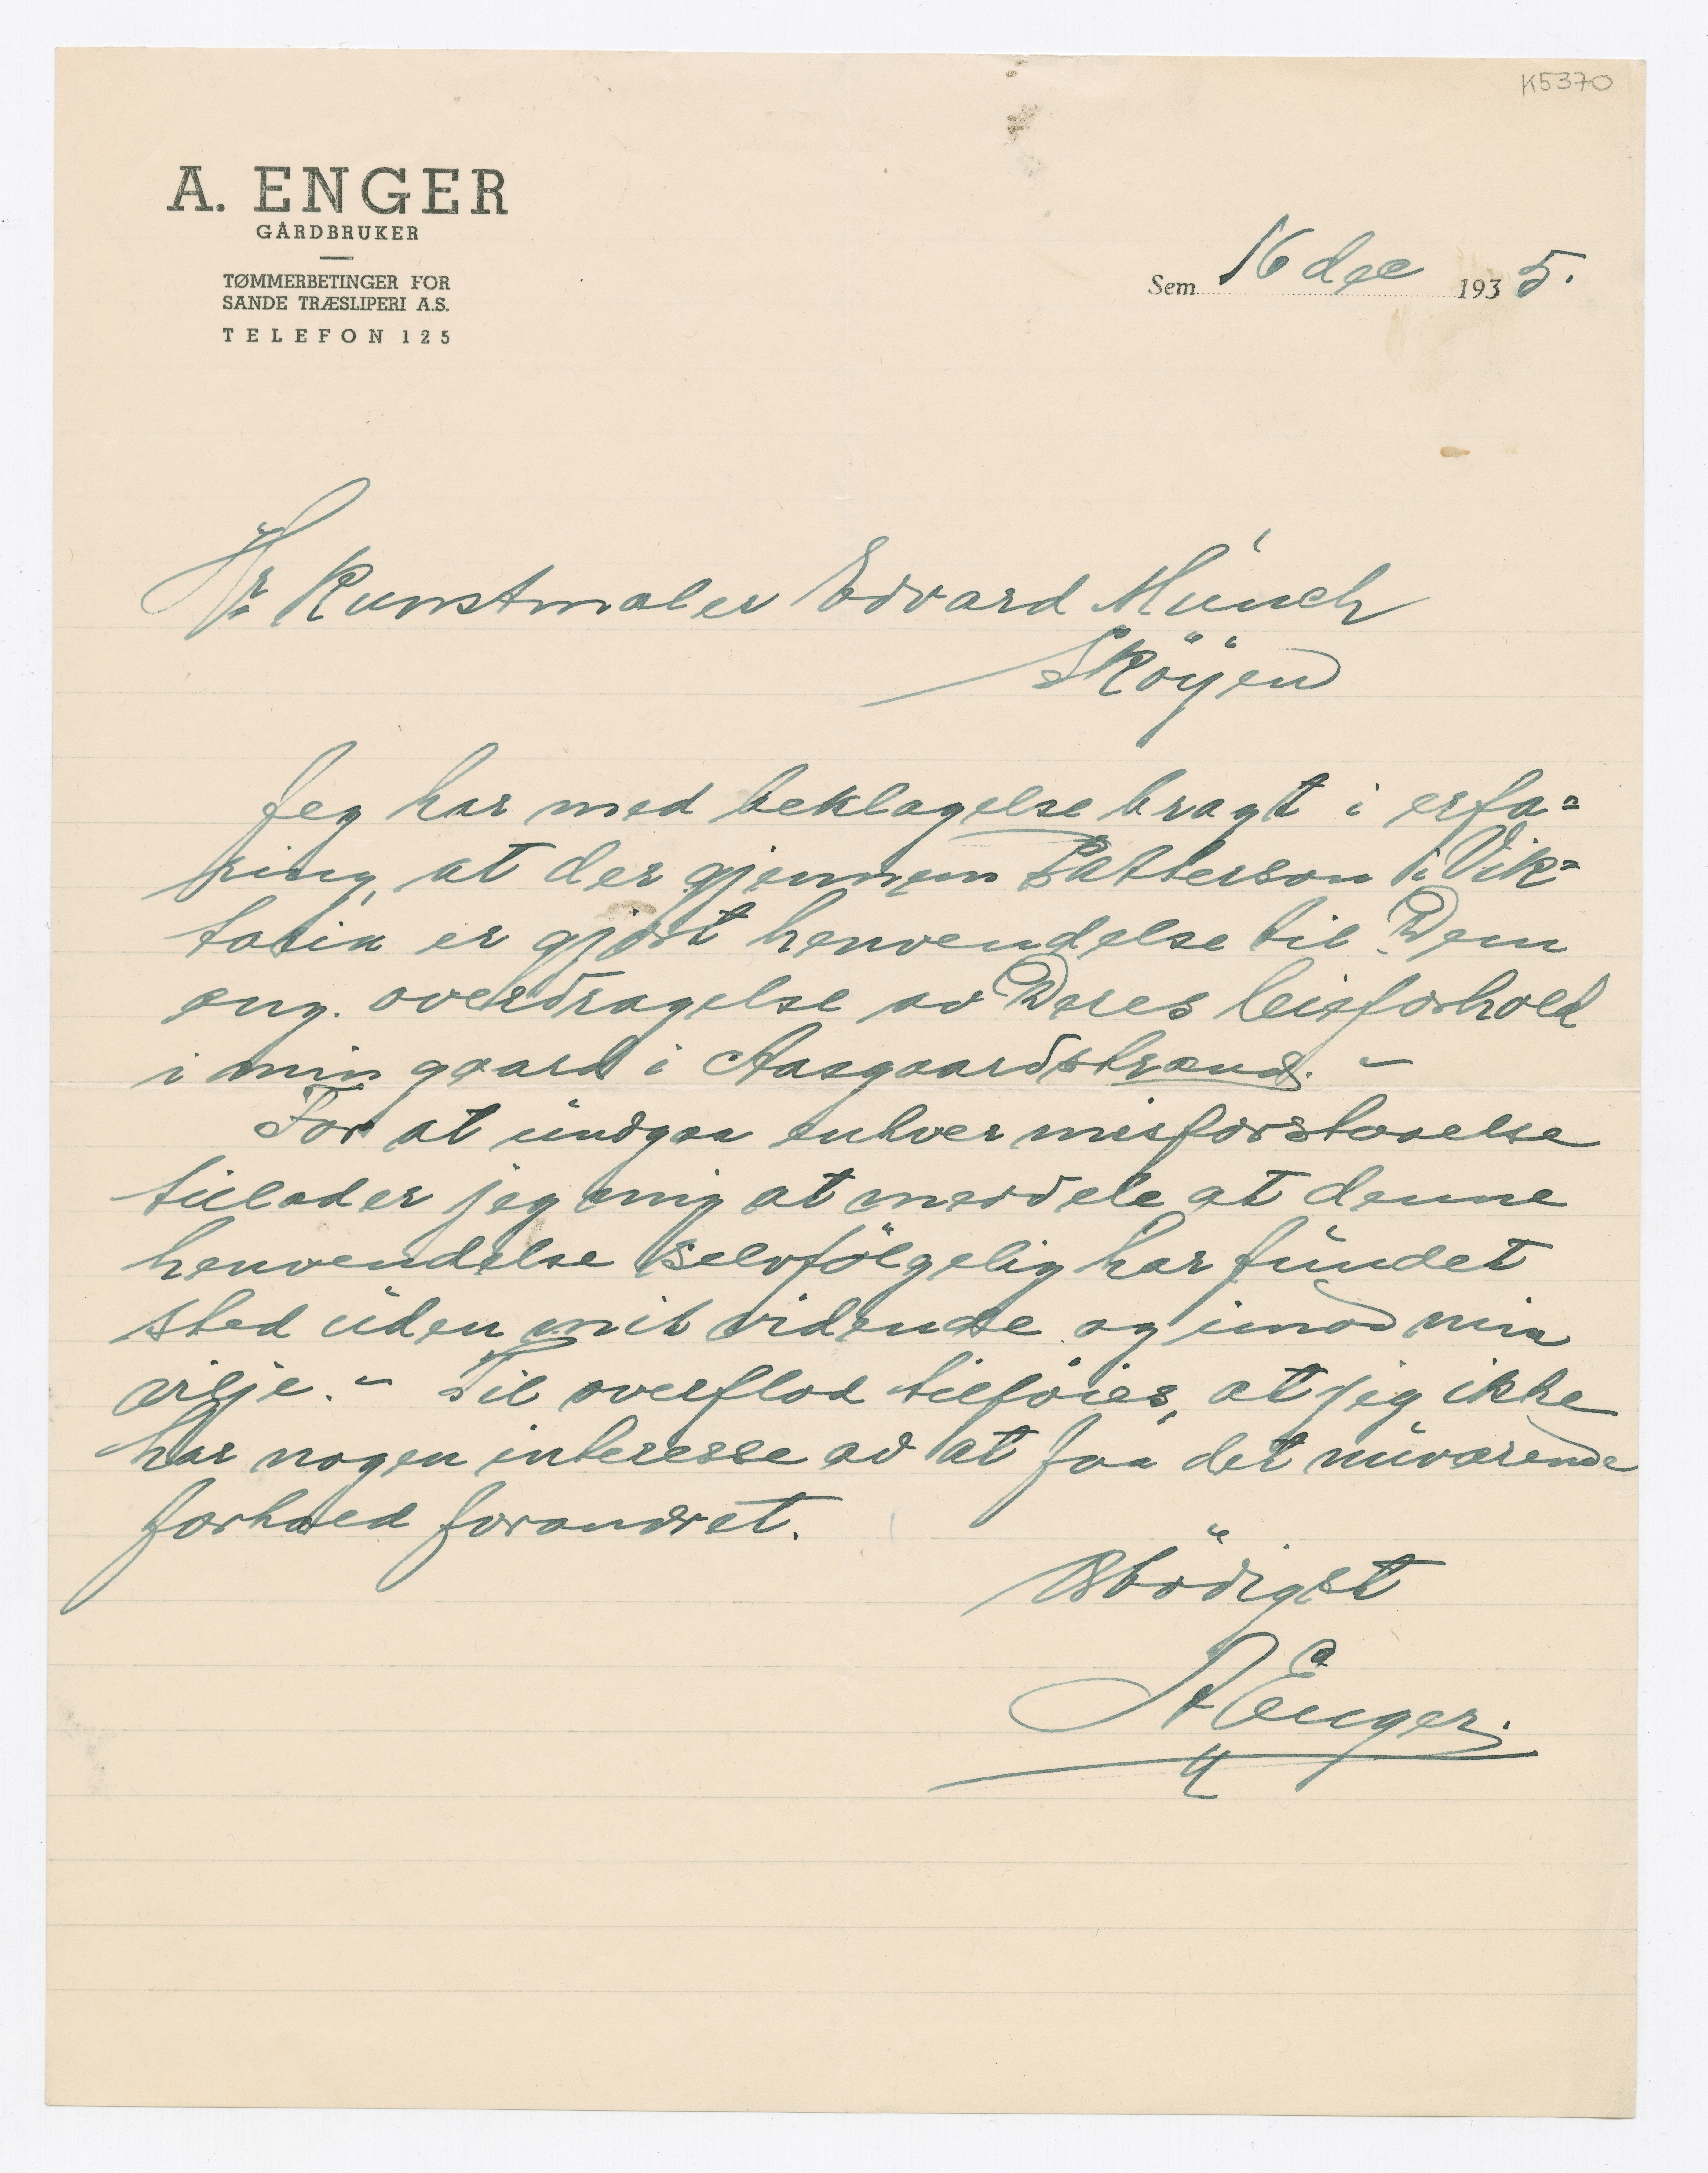 K5370
A. ENGER
GÅRDBRUKER
TØMMERBETINGER FOR
SANDE TRÆSLIPERI A.S.
TELEFON 125
Sem 16 dec 1935.
Hr Kunstmaler Edvard Münch
Sköÿen
Jeg har med beklagelse bragt i erfa=
ring, at der gjennem Patterson i Vik=
toria er gjort henvendelse til Dem
ang. overdragelse av Deres leieforhold
i min gaard i Aasgaardstrand. –
For at undgaa enhver misforstaaelse
tillader jeg mig at meddele at denne
henvendelse selvfölgelig har fundet
sted uden mit vidende og imod min
vilje. – Til overflod tilföies, at jeg ikke
har nogen interesse av at faa det nuværende
forhold forandret.
Ærbödigst
A Enger.